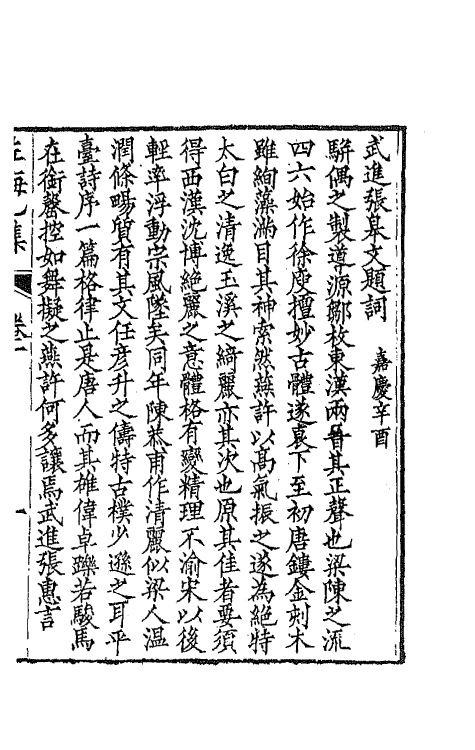 武進張臯文題詞　嘉慶辛酉
駢偶之製導源鄒枚東漢兩晉其正聲也梁陳之流
四六始作徐庾擅妙古體遂衰下至初唐鏤金刻木
雖絢藻滿目其神索然燕許以高氣振之遂為絕特
太白之清逸玉溪之綺麗亦其次也原其佳者要須
得西漢沈博絕麗之意體格有變精理不渝宋以後
輕率浮動宗風墜矣同年陳恭甫作清麗似梁人溫
潤條暢質有其文任彥升之儔特古樸少遜之耳平
臺詩序一篇格律止是唐人而其雄偉卓躒若駿馬
在銜罄控如舞擬之燕許何多讓焉武進張惠言
卷一
一